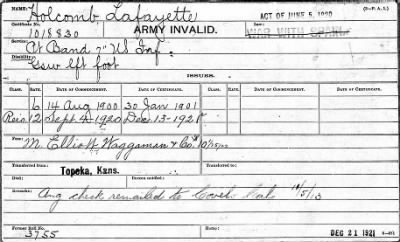 NAME: Holcomb Lafayette ACT OF JUNE 5, 1920
Certificate No. 1018830 ARMY INVALID. WAR WITH SPAIN
Service: Band 7" US Inf.
Disability: Gsw lft foot
ISSUES.
RATE. DATE OF COMMENCEMENT. DATE OF CERTIFICATE. RATE. DATE OF COMMENCEMENT. DATE OF CERTIFICATE.
6 14 Aug 1900 30 Jan 1901
12 Sept. 4-1920 Dec. 13-1921
From M. Elliott, Waggaman & Co.
Transferred from Topeka, Kans. Transferred to
Remarks: Aug check remailed to
Former Roll No. 3755 DEC 21 1921